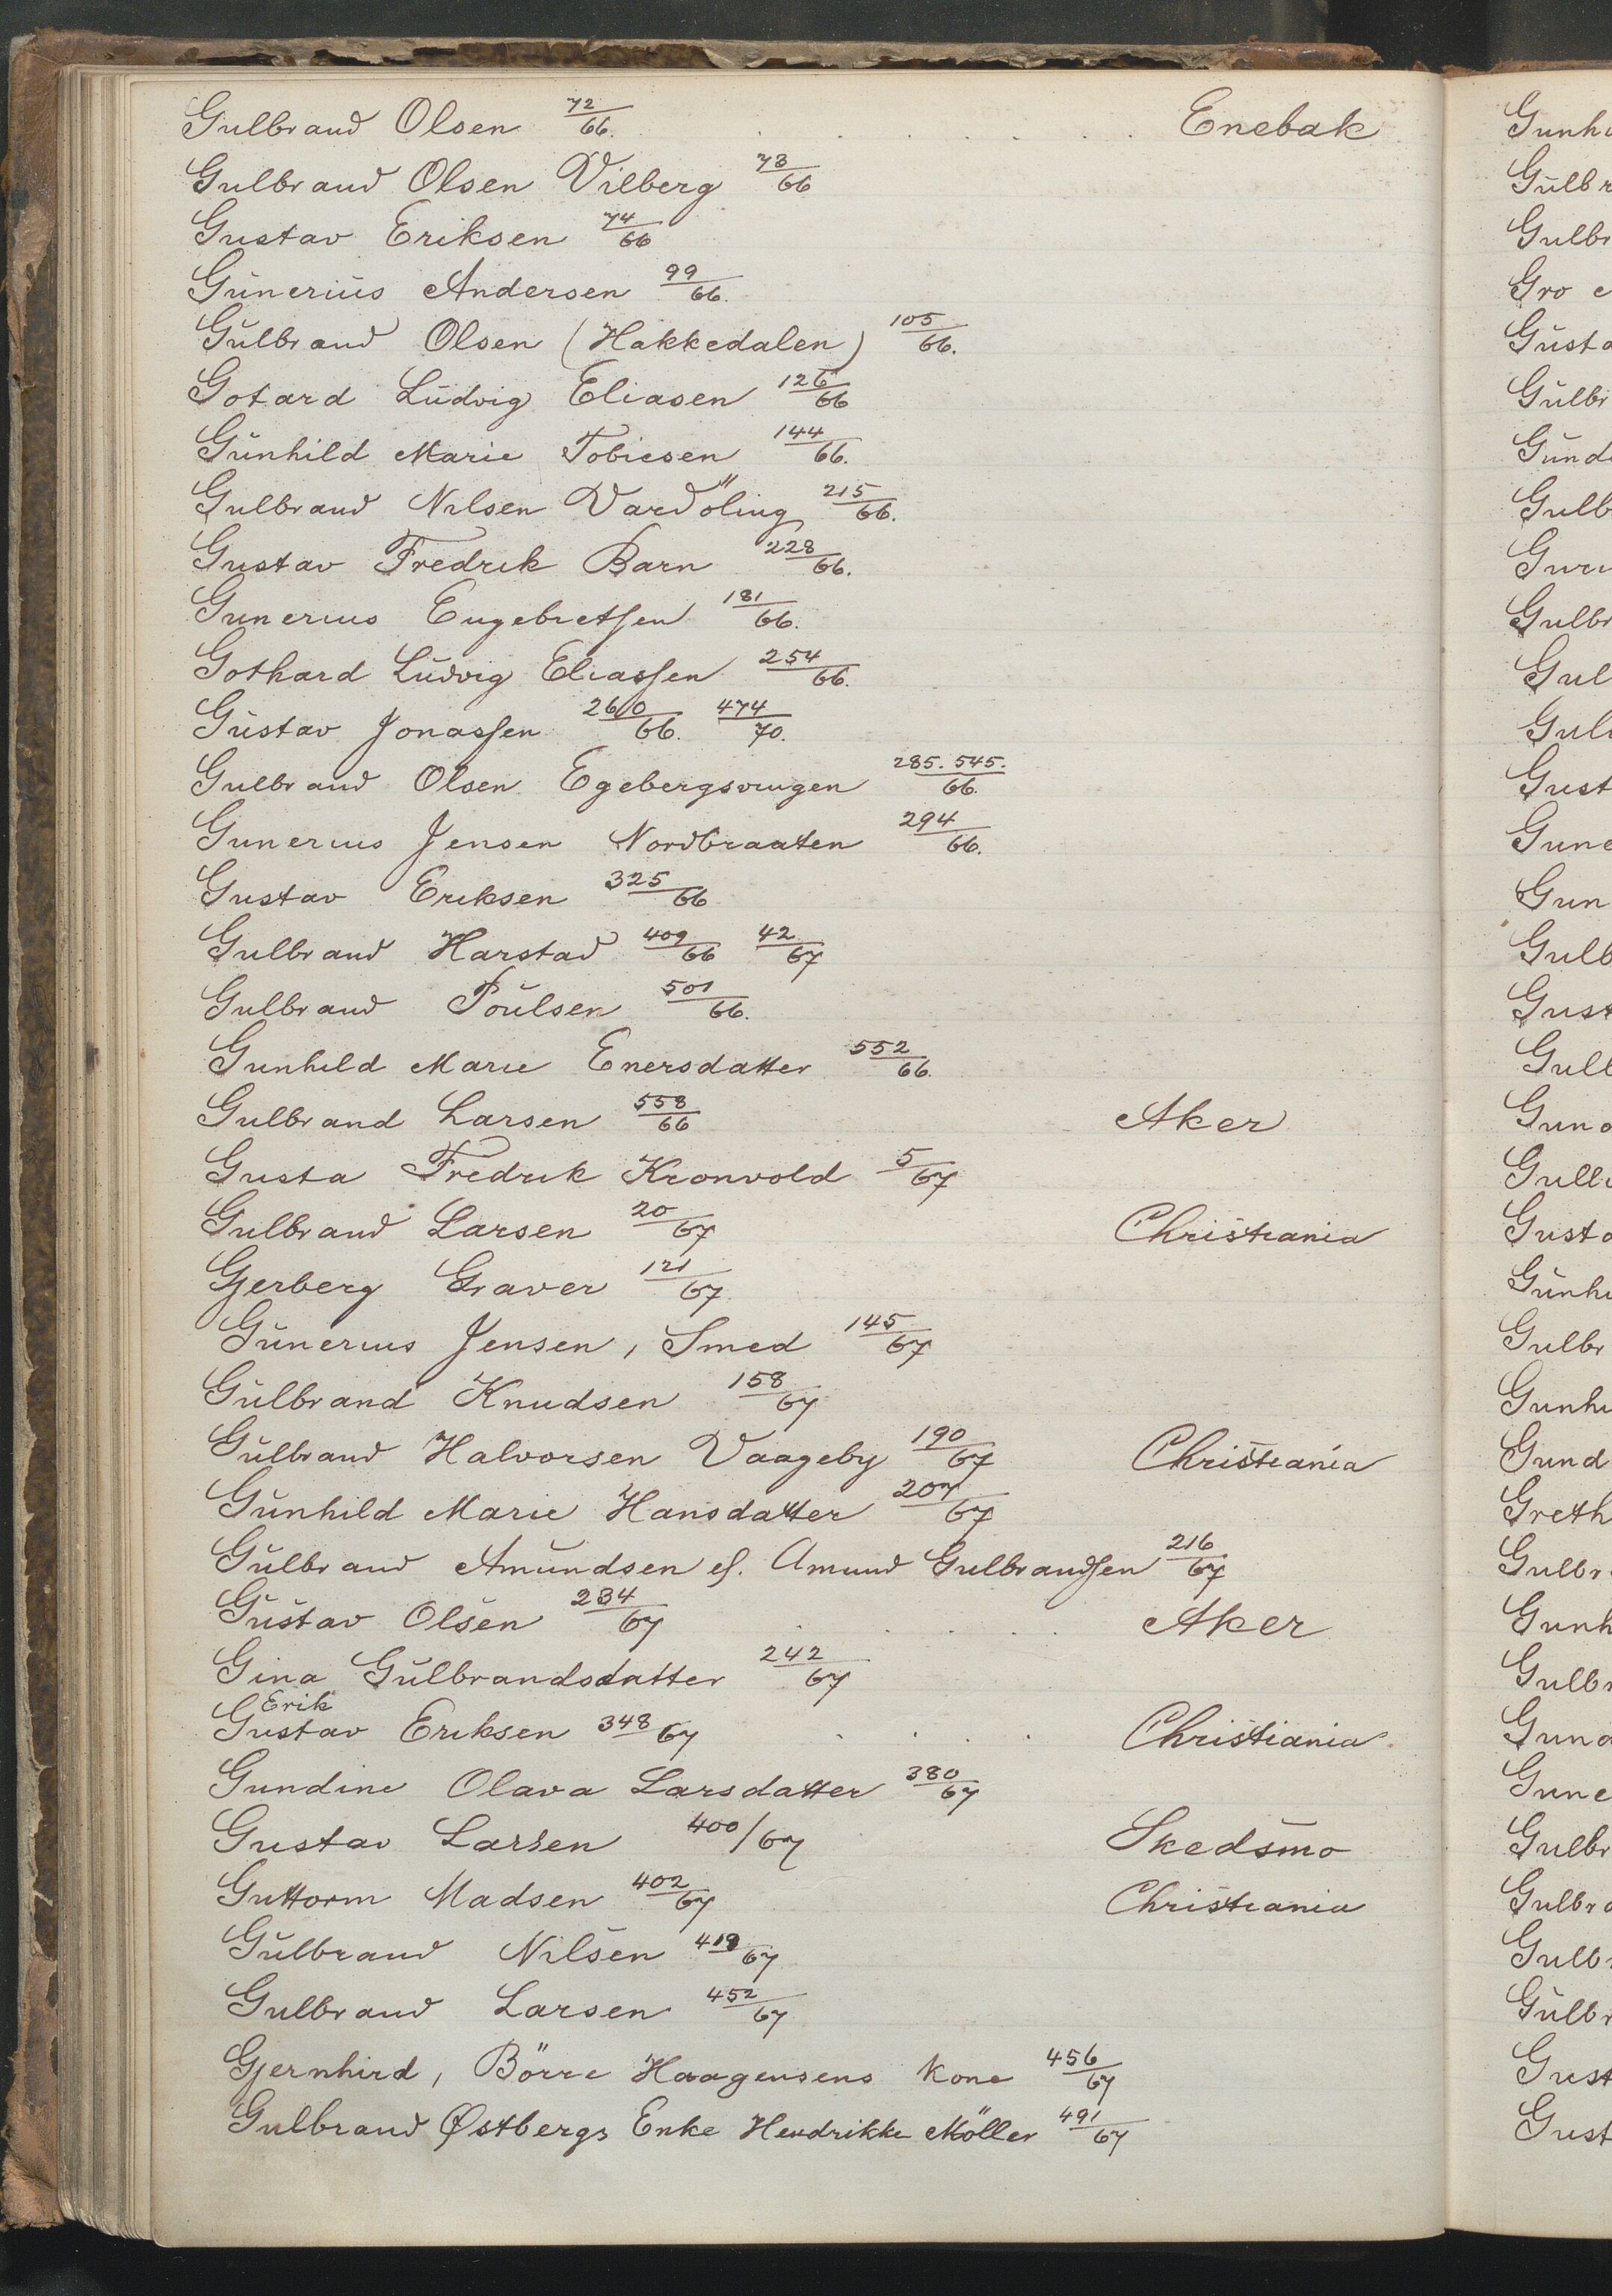 Gulbrand Olsen 72/66. . . . . . . Enebak
Gulbrand Olsen Vilberg 73/66
Gustav Eriksen 74/66
Gunerius Andersen 99/66.
Gulbrand Olsen (Hakkedalen) 105/66.
Gotard Ludvig Eliasen 126/66
Gunhild Marie Tobiesen 144/66.
Gulbrand Nilsen Vardöling 215/66.
Gustav Fredrik Barn 228/66.
Gunerius Engebretsen 181/66.
Gothard Ludvig Eliassen 254/66.
Gustav Jonassen 260/66. 474/70.
Gulbrand Olsen Egebergsvingen 285. 545./66.
Gunerius Jensen Nordbraaten 294/66.
Gustav Eriksen 325/66
Gulbrand Harstad 409/66 42/67
Gulbrand Poulsen 501/66.
Gunhild Marie Enersdatter 552/66.
Gulbrand Larsen 558/66 Aker
Gusta Fredrik Kronvold 5/67
Gulbrand Larsen 20/67 Christiania
Gjerberg Graver 121/67
Gunerius Jensen, Smed 145/67
Gulbrand Knudsen 158/67
Gulbrand Halvorsen Vaageby 190/67 Christiania
Gunhild Marie Hansdatter 207/67
Gulbrand Amundsen el. Amund Gulbrandsen 216/67
Gustav Olsen 234/67 . . . . . Aker
Gina Gulbrandsdatter 242/67
Erik
Gustav Eriksen 348/67 . . . . Christiania
Gundine Olava Larsdatter 380/67
Gustav Larsen 400/67 Skedsmo
Guttorm Madsen 402/67 Christiania
Gulbrand Nilsen 419/67
Gulbrand Larsen 452/67
Gjernhird, Börre Haagensens Kone 456/67
Gulbrand Østbergs Enke Hendrikke Möller 491/67